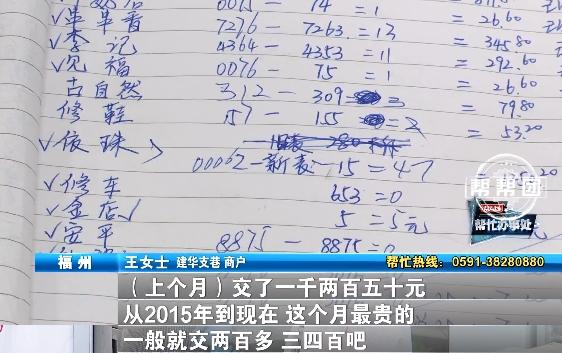 0015 — 14 = 1 = 26.60
√ 7276 — 7263. 13 = 345.80
√ 李记 4364 — 4353 = 11 = 292.60
√ 福 0076 — 75 = 1 = 26.60
古自然 312 — 309 = 3 = 79.80
修鞋 157 — 155 2 = 53.20
√ 依珠
00062 — 新表 — 15 = 47
√ 修车 653 = 0
√ 金店 √ 5 = 5元
√ 安平 8875 — 8875 = 0
帮帮团
帮忙办事处
福州 王女士 建华支巷 商户 帮忙热线：0591-38280880
（上个月）交了一千两百五十元
从2015年到现在 这个月最贵的
一般就交两百多 三四百吧